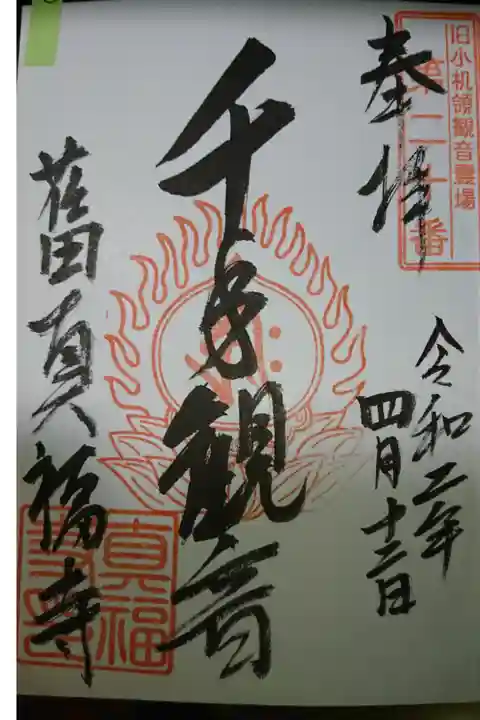 旧小机領観音霊場
第二十番
奉拝
令和二年
四月十二日
千手観音
荏田真福寺
真福